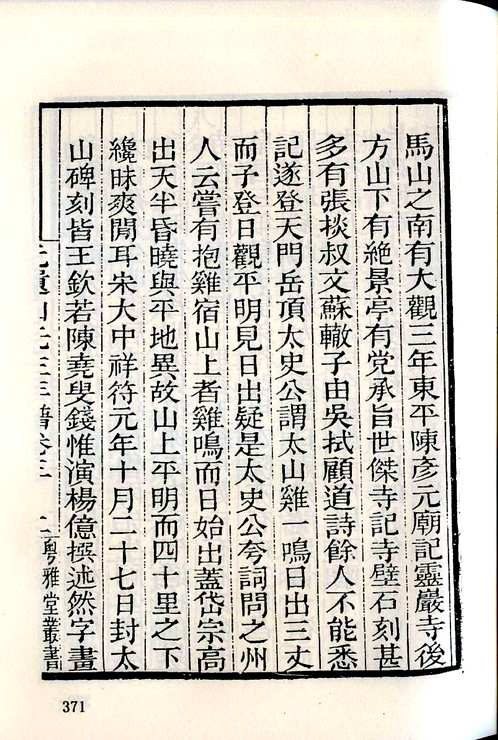 馬山之南有大觀三年東平陳彥元廟記靈巖寺後
方山下有絶景亭有党承旨世傑寺記寺壁石刻甚
多有張掞叔文蘇轍子由吳拭顧道詩餘人不能悉
記遂登天門岳頂太史公謂太山雞一鳴日出三丈
而予登日觀平明見日出疑是太史公夸詞問之州
人云嘗有抱雞宿山上者雞鳴而日始出蓋岱宗高
出天半昏曉與平地異故山上平明而四十里之下
纔昧爽間耳宋大中祥符元年十月二十七日封太
山碑刻皆王欽若陳堯叟錢惟演楊億撰述然字畫
元遺山先生年譜卷三
粵雅堂叢書
371